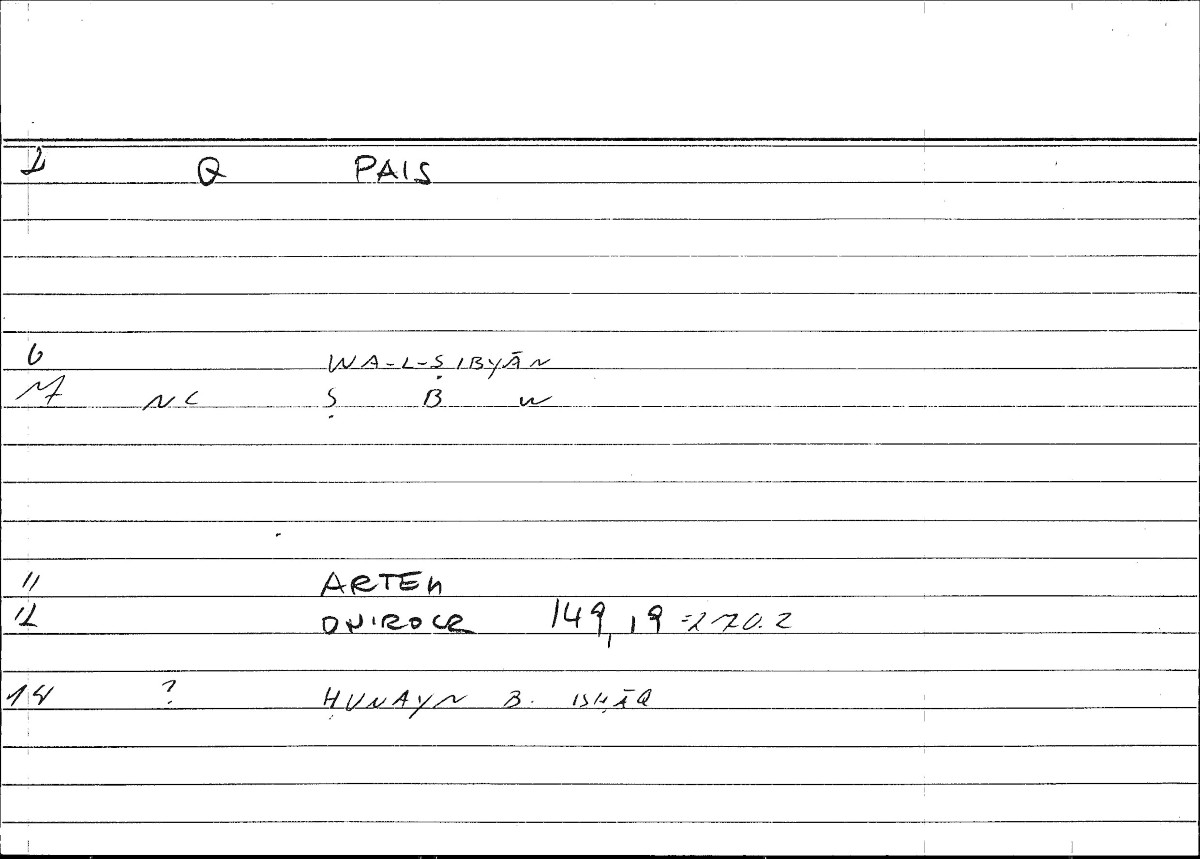 2 Q PAIS
6 WA-L-ṢIBYĀN
7 NC Ṣ B W
11 ARTEM
12 ONIROCR 149,19 =270.2
14 ? ḤUNAYN B. ISḤĀQ